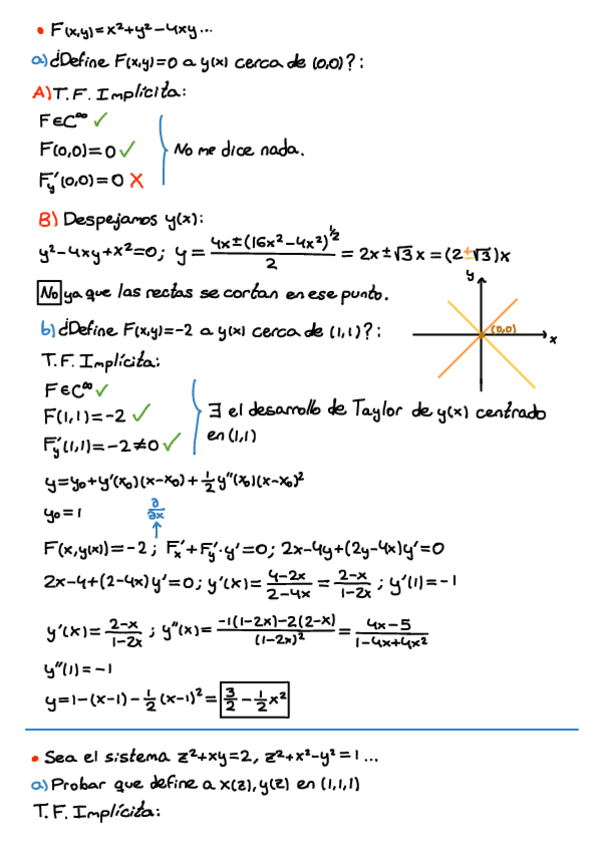 • F(x,y)=x²+y²-4xy...
a) ¿Define F(x,y)=0 a y(x) cerca de (0,0)?:
A) T.F. Implícita:
F∈C^∞ ✓
F(0,0)=0 ✓
No me dice nada.
F'y(0,0)=0 X
B) Despejamos y(x):
y²-4xy+x²=0; y = (4x±(16x²-4x²)^½)/2 = 2x±√3x = (2±√3)x
No ya que las rectas se cortan en ese punto.
y
(0,0)
x
b) ¿Define F(x,y)=-2 a y(x) cerca de (1,1)?:
T.F. Implícita:
F∈C^∞ ✓
F(1,1)=-2 ✓
F'y(1,1)=-2≠0 ✓
∃ el desarrollo de Taylor de y(x) centrado
en (1,1)
y=y₀+y'(x₀)(x-x₀)+½y''(x₀)(x-x₀)²
y₀=1
∂/∂x
F(x,y(x))=-2; F'x+F'y·y'=0; 2x-4y+(2y-4x)y'=0
2x-4+(2-4x)y'=0; y'(x)=(4-2x)/(2-4x) = (2-x)/(1-2x); y'(1)=-1
y'(x)=(2-x)/(1-2x); y''(x)=(-1(1-2x)-2(2-x))/(1-2x)² = (4x-5)/(1-4x+4x²)
y''(1)=-1
y=1-(x-1)-½(x-1)²=3/2-½x²
• Sea el sistema z²+xy=2, z²+x²-y²=1...
a) Probar que define a x(z), y(z) en (1,1,1)
T.F. Implícita: